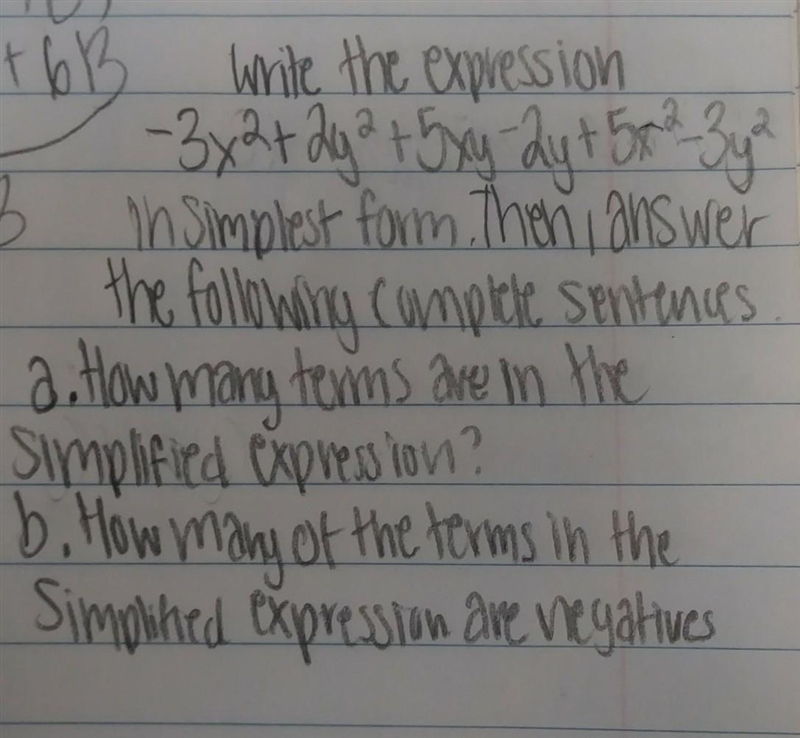 + 6B
Write the expression
-3x²+2y²+5xy-2y+5x²-3y²
in simplest form. Then, answer
the following complete sentences.
a. How many terms are in the
simplified expression?
b. How many of the terms in the
Simplified expression are negatives